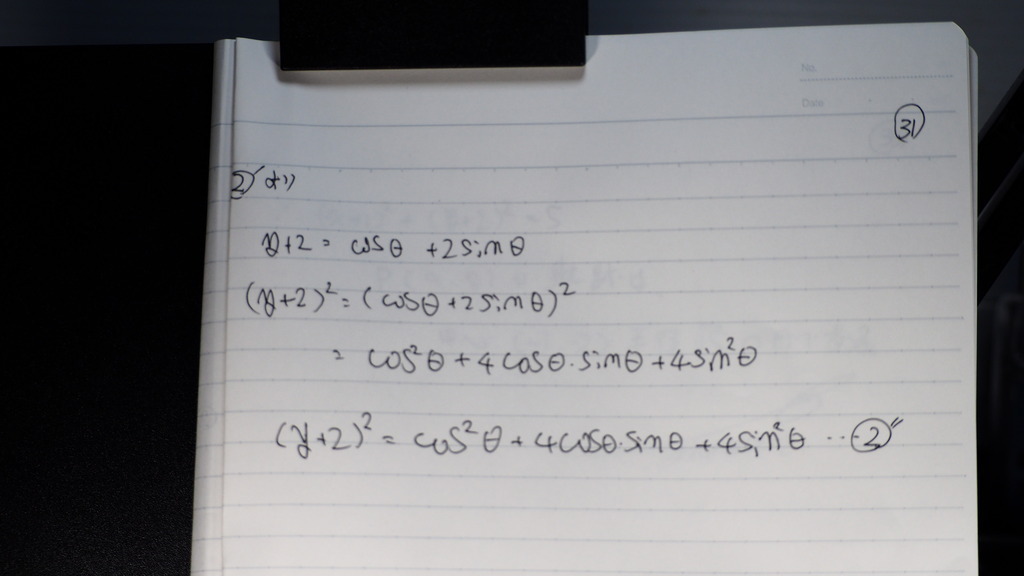 No.
Date
㉛
②' より
y+2 = cosθ +2sinθ
(y+2)² = (cosθ+2sinθ)²
= cos²θ + 4cosθ·sinθ + 4sin²θ
(y+2)² = cos²θ + 4cosθ·sinθ + 4sin²θ ··· ②"